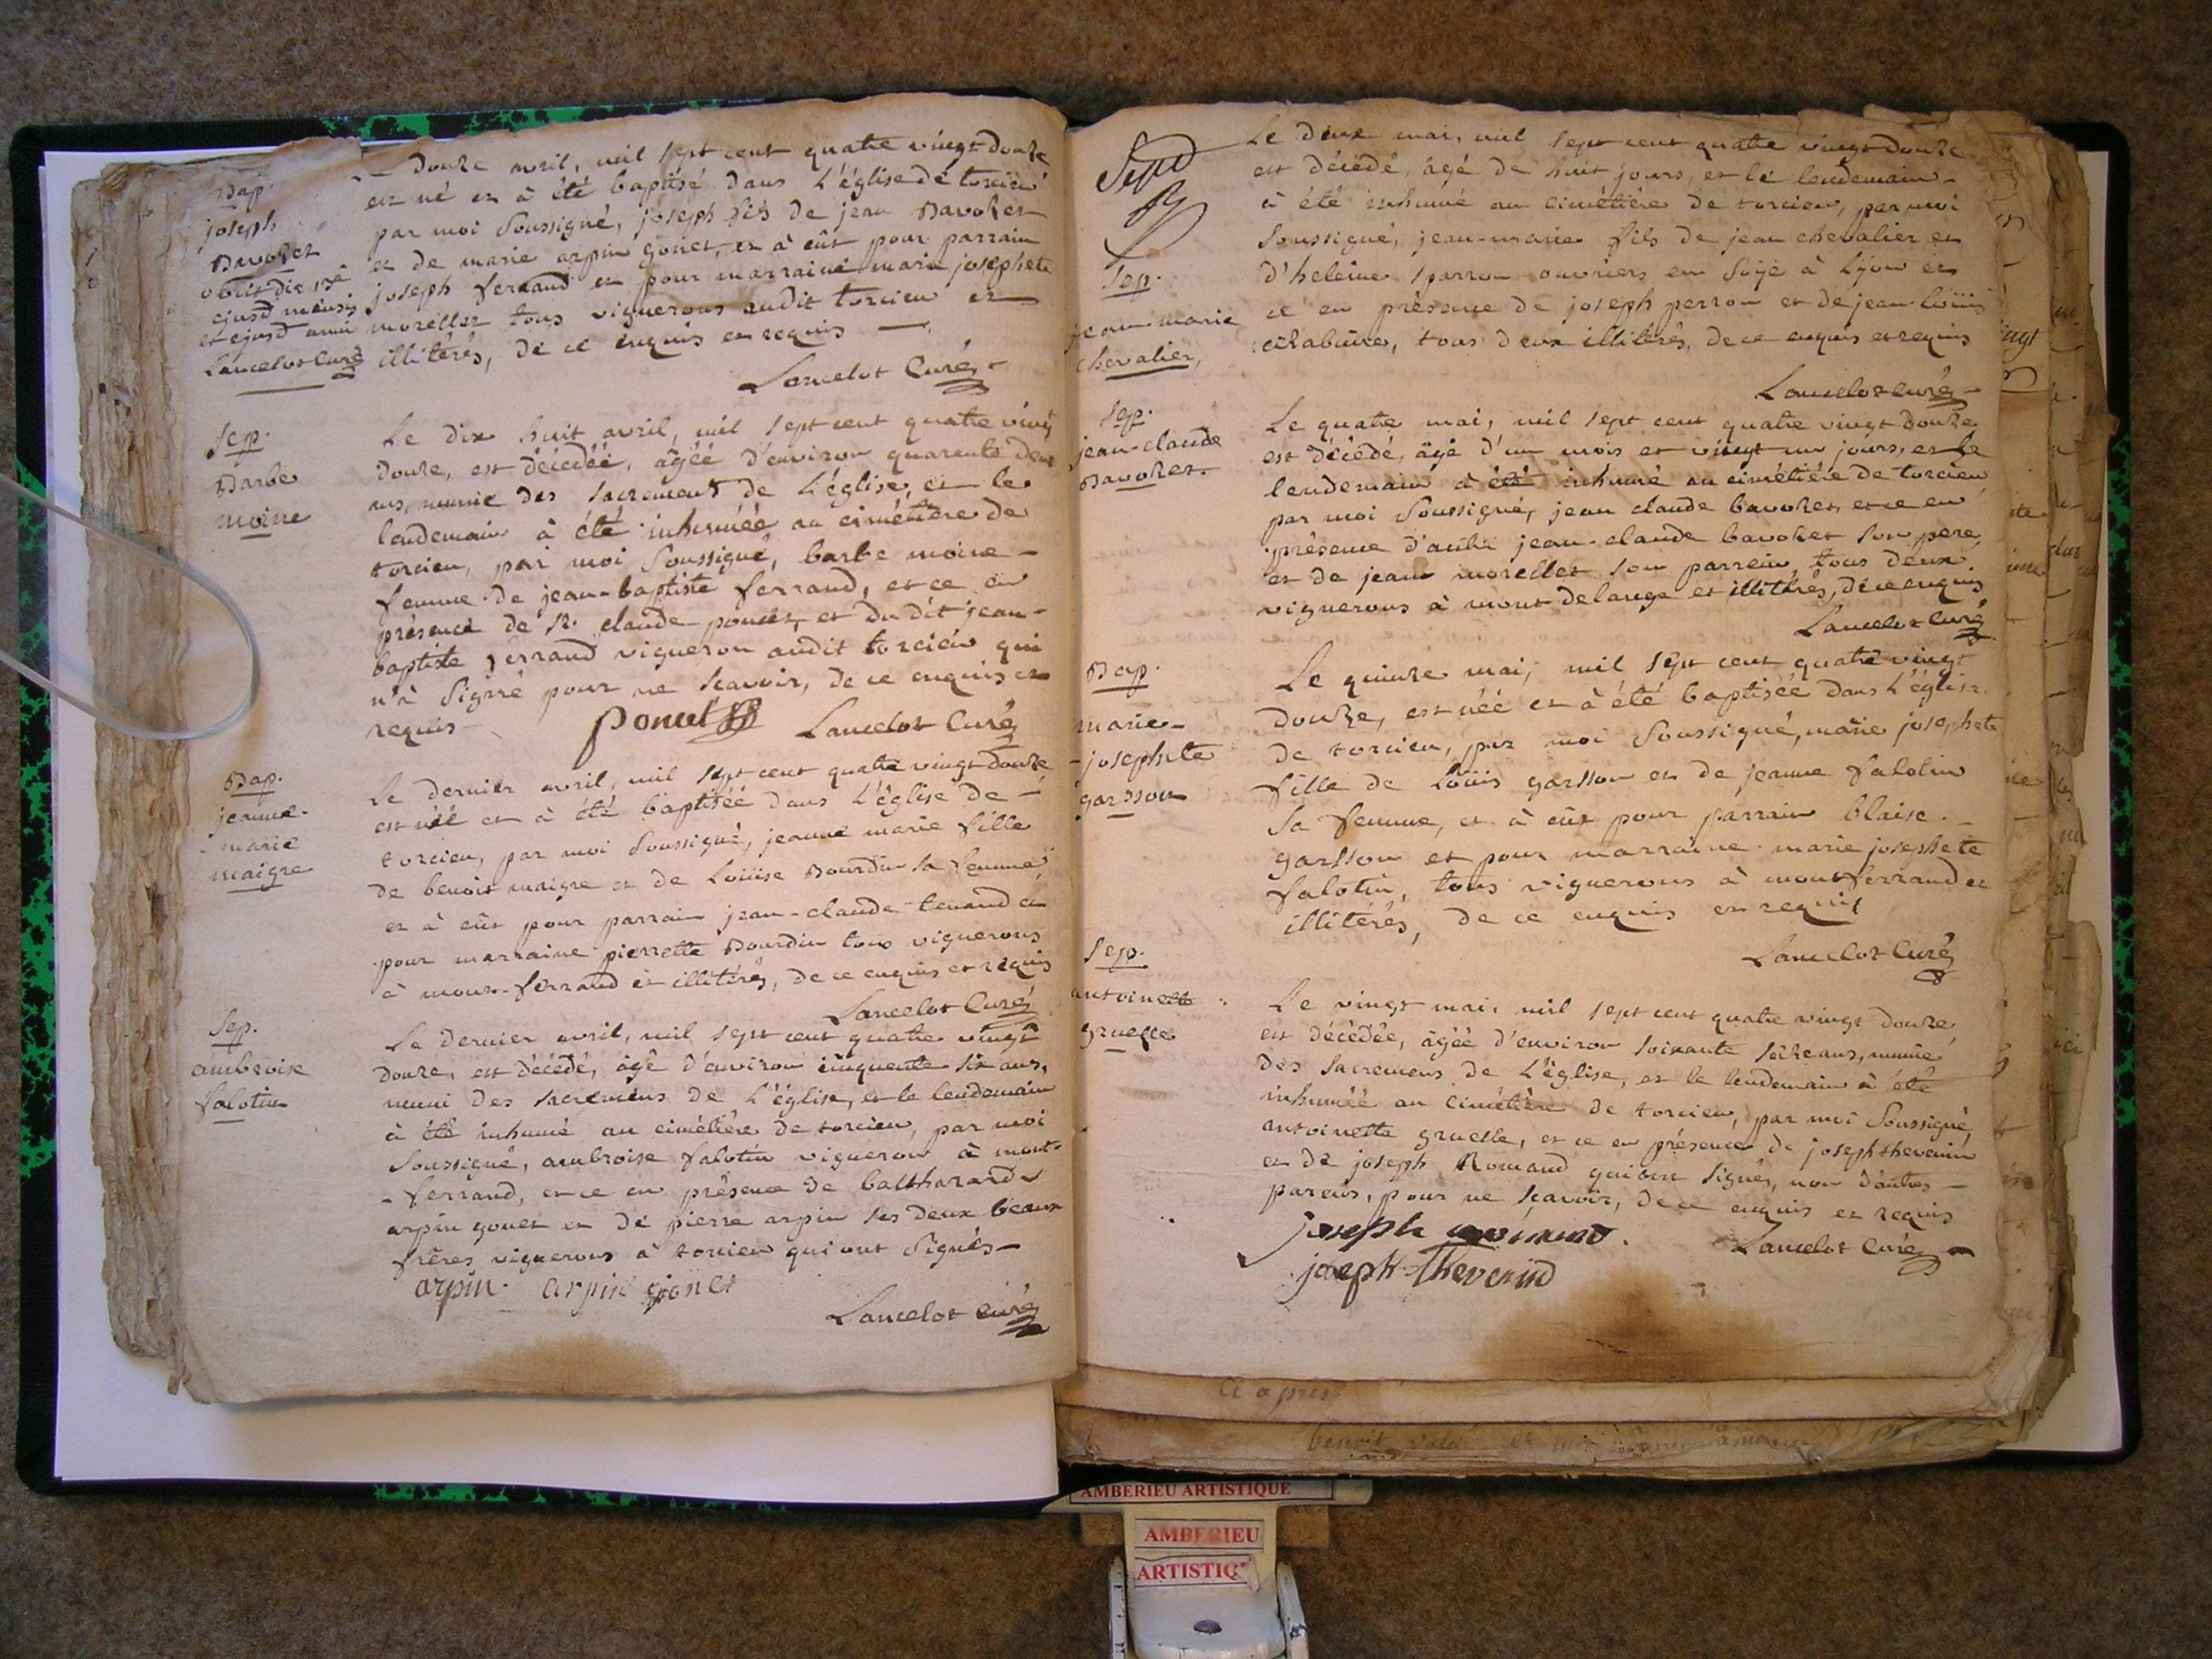 Bap.
joseph
Bavoket
obiit die 13ª
ejusd mensis
et ejusd anni
Lancelot Curé
Le Douze avril, mil sept cent quatre vingt Douze
est né et à été baptisé dans L'église de torcieu
par moi Soussigné, joseph fils de jean Bavoket
et de marie arpin gonet, et à eût pour parrain
joseph ferrand et pour marraine marie josephete
morellet tous vignerons audit torcieu et
illitérés, de ce enquis et requis
Lancelot Curé
Sep.
Barbe
moine
Le dix huit avril, mil sept cent quatre vingt
Douze, est décédéé, âgéé d'environ quarente deux
ans, munie des sacrements de L'église, et le
lendemain à été inhuméé au cimétière de
torcieu, par moi Soussigné, barbe moine
femme de jean-baptiste ferrand, et ce en
présence de Sr. claude poncet, et du dit jean-
baptiste ferrand vigneron audit torcieu qui
n'à Signé pour ne scavoir, de ce enquis et
requis
poncet Lancelot Curé
Bap.
jeanne-
marie
maigre
Le dernier avril, mil sept cent quatre vingt Douze
est néé et à été baptiséé dans L'église de
torcieu, par moi Soussigné, jeanne marie fille
de benoit maigre et de Loüise Bourdin sa femme,
et à eût pour parrain jean-claude tenand et
pour marraine pierrette Bourdin tous vignerons
à mont-ferrand et illitérés, de ce enquis et requis
Lancelot Curé
Sep.
ambroise
falotin
Le dernier avril, mil sept cent quatre vingt
Douze, est décédé, âgé d'environ cinquente six ans,
muni des sacremens de L'église, et le lendemain
à été inhumé au cimétière de torcieu, par moi
Soussigné, ambroise falotin vigneron à mont-
-ferrand, et ce en présence de balthazard
arpin gonet et de pierre arpin ses deux beaux
frères vignerons à torcieu qui ont Signés
arpin arpin gonet
Lancelot curé
Sept
Sep.
jean-marie
chevalier
Le deux mai, mil sept cent quatre vingt Douze
est décédé, âgé de huit jours, et le lendemain
à été inhumé au cimétière de torcieu, par moi
Soussigné, jean-marie fils de jean chevalier et
d'heleine Sparron ouvriers en Soÿe à Lÿon et
ce en présence de joseph perron et de jean-loüis
chabaire, tous deux illitérés, de ce enquis et requis
Lancelot curé
Sep.
jean-claude
Bavoket
Le quatre mai, mil sept cent quatre vingt Douze
est décédé, âgé d'un mois et vingt un jours, et le
lendemain à été inhumé au cimétière de torcieu
par moi Soussigné, jean claude bavoket, et ce en
présence d'autre jean-claude bavoket son pere
et de jean morellet son parrein, tous deux
vignerons à mont de lange et illitérés, de ce enquis
Lancelot Curé
Bap.
marie-
-josephete
garsson
Le quinze mai, mil sept cent quatre vingt
Douze, est néé et à été baptiséé dans L'église
de torcieu, par moi Soussigné, marie josephete
fille de Loüis garsson et de jeanne falotin
Sa femme, et à eût pour parrain blaise
garsson et pour marraine marie josephete
falotin, tous vignerons à montferrand et
illitérés, de ce enquis et requis
Lancelot Curé
Sep.
antoinette
gruelle
Le vingt mai, mil sept cent quatre vingt Douze
est décédéé, âgéé d'environ soixante seize ans, munie
des Sacremens de L'église, et le lendemain à été
inhuméé au cimétière de torcieu, par moi Soussigné
antoinette gruelle, et ce en présence de joseph thevenin
et de joseph Romand qui ont Signés, non d'autres
parens, pour ne scavoir, de ce enquis et requis
Lancelot Curé
joseph thevenin
ci apres
AMBERIEU ARTISTIQUE
AMBERIEU
ARTISTIQ